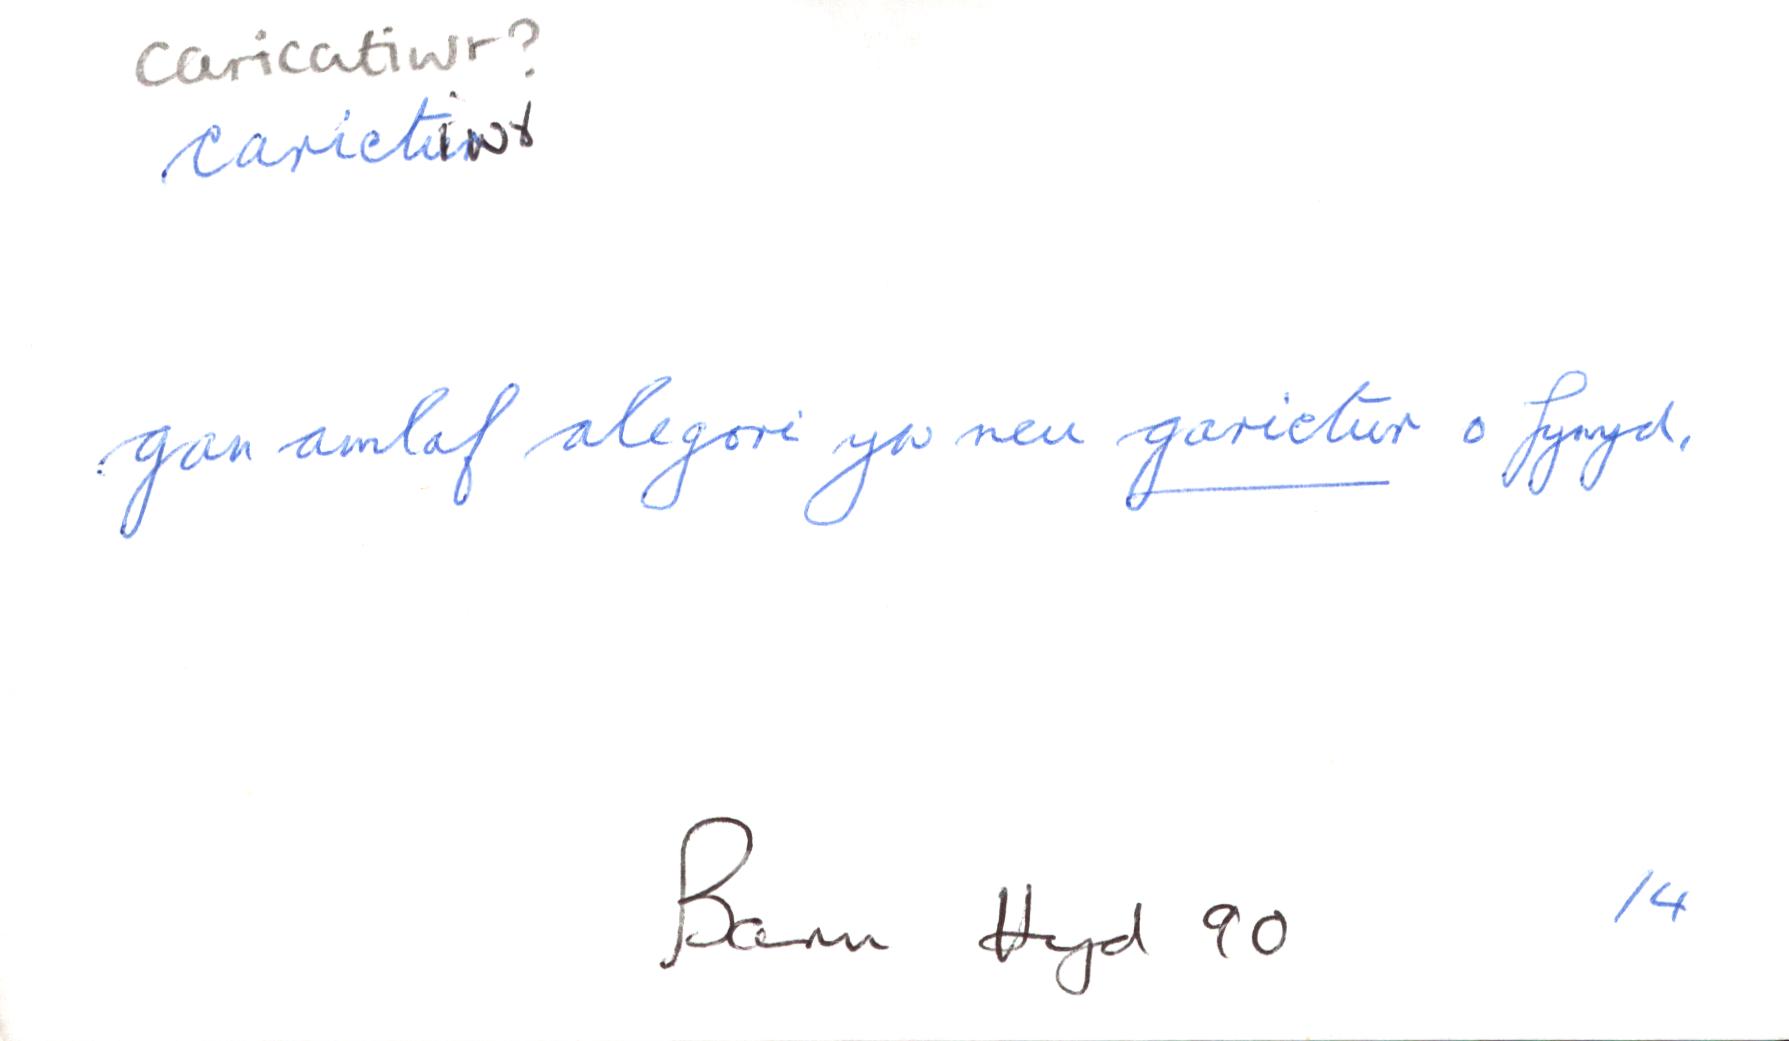 caricatiwr?
carictiwr
gan amlaf alegori yw neu garictur o fynyd.
Barn Hyd 90 14